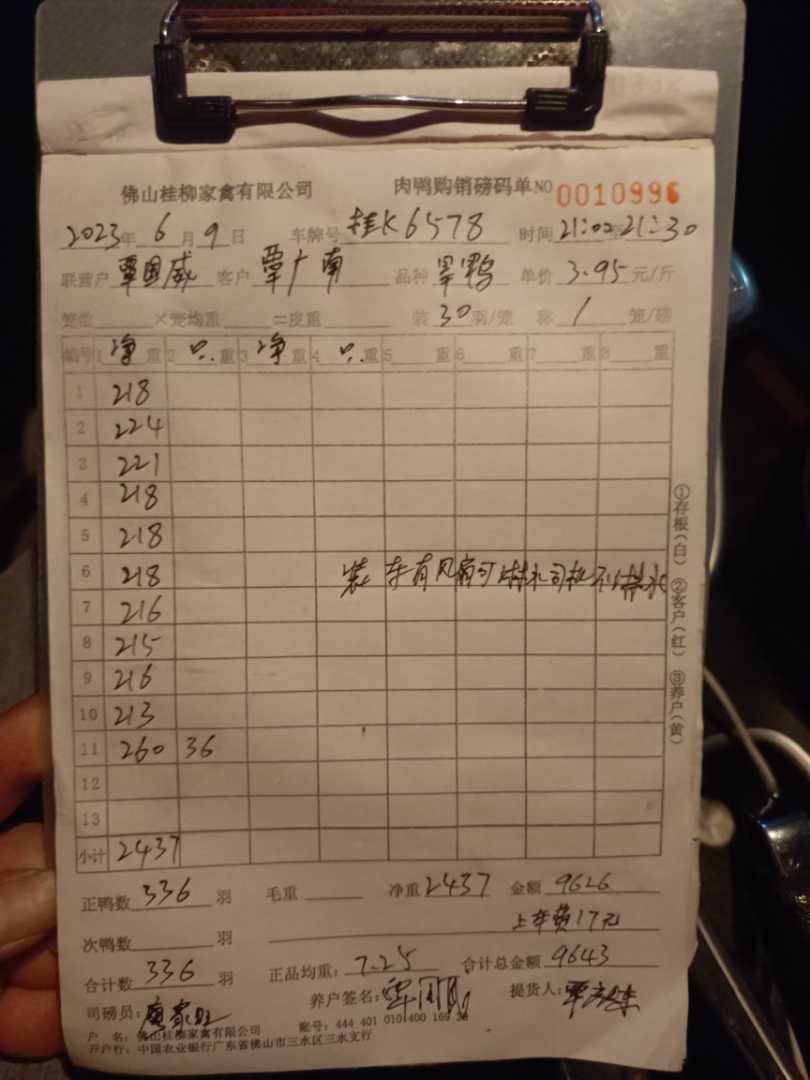 佛山桂柳家禽有限公司 肉鸭购销磅码单 NO 0010996
2023年 6月 9日 车牌号 桂K6578 时间 21:00至21:30
联营户 覃国威 客户 覃广南 品种 单价 3.95 元/斤
笼数 ×笼均重 =皮重 装 30 羽/笼 称 1 笼/磅
编号 1 净重 2 只.重 3 净重 4 只.重 5 重 6 重 7 重 8 重
1 218
2 224
3 221
4 218
5 218
6 218 装车有风扇可 水司机不 水
7 216
8 215
9 216
10 213
11 260 36
12
13
小计 2437
①存根(白) ②客户(红) ③养户(黄)
正鸭数 336 羽 毛重 净重 2437 金额 9626
次鸭数 羽 上车费17元
合计数 336 羽 正品均重: 7.25 合计总金额 9643
司磅员: 养户签名: 提货人:
户 名: 佛山桂柳家禽有限公司 账号: 444 401 010 400 169
开户行: 中国农业银行广东省佛山市三水区三水支行